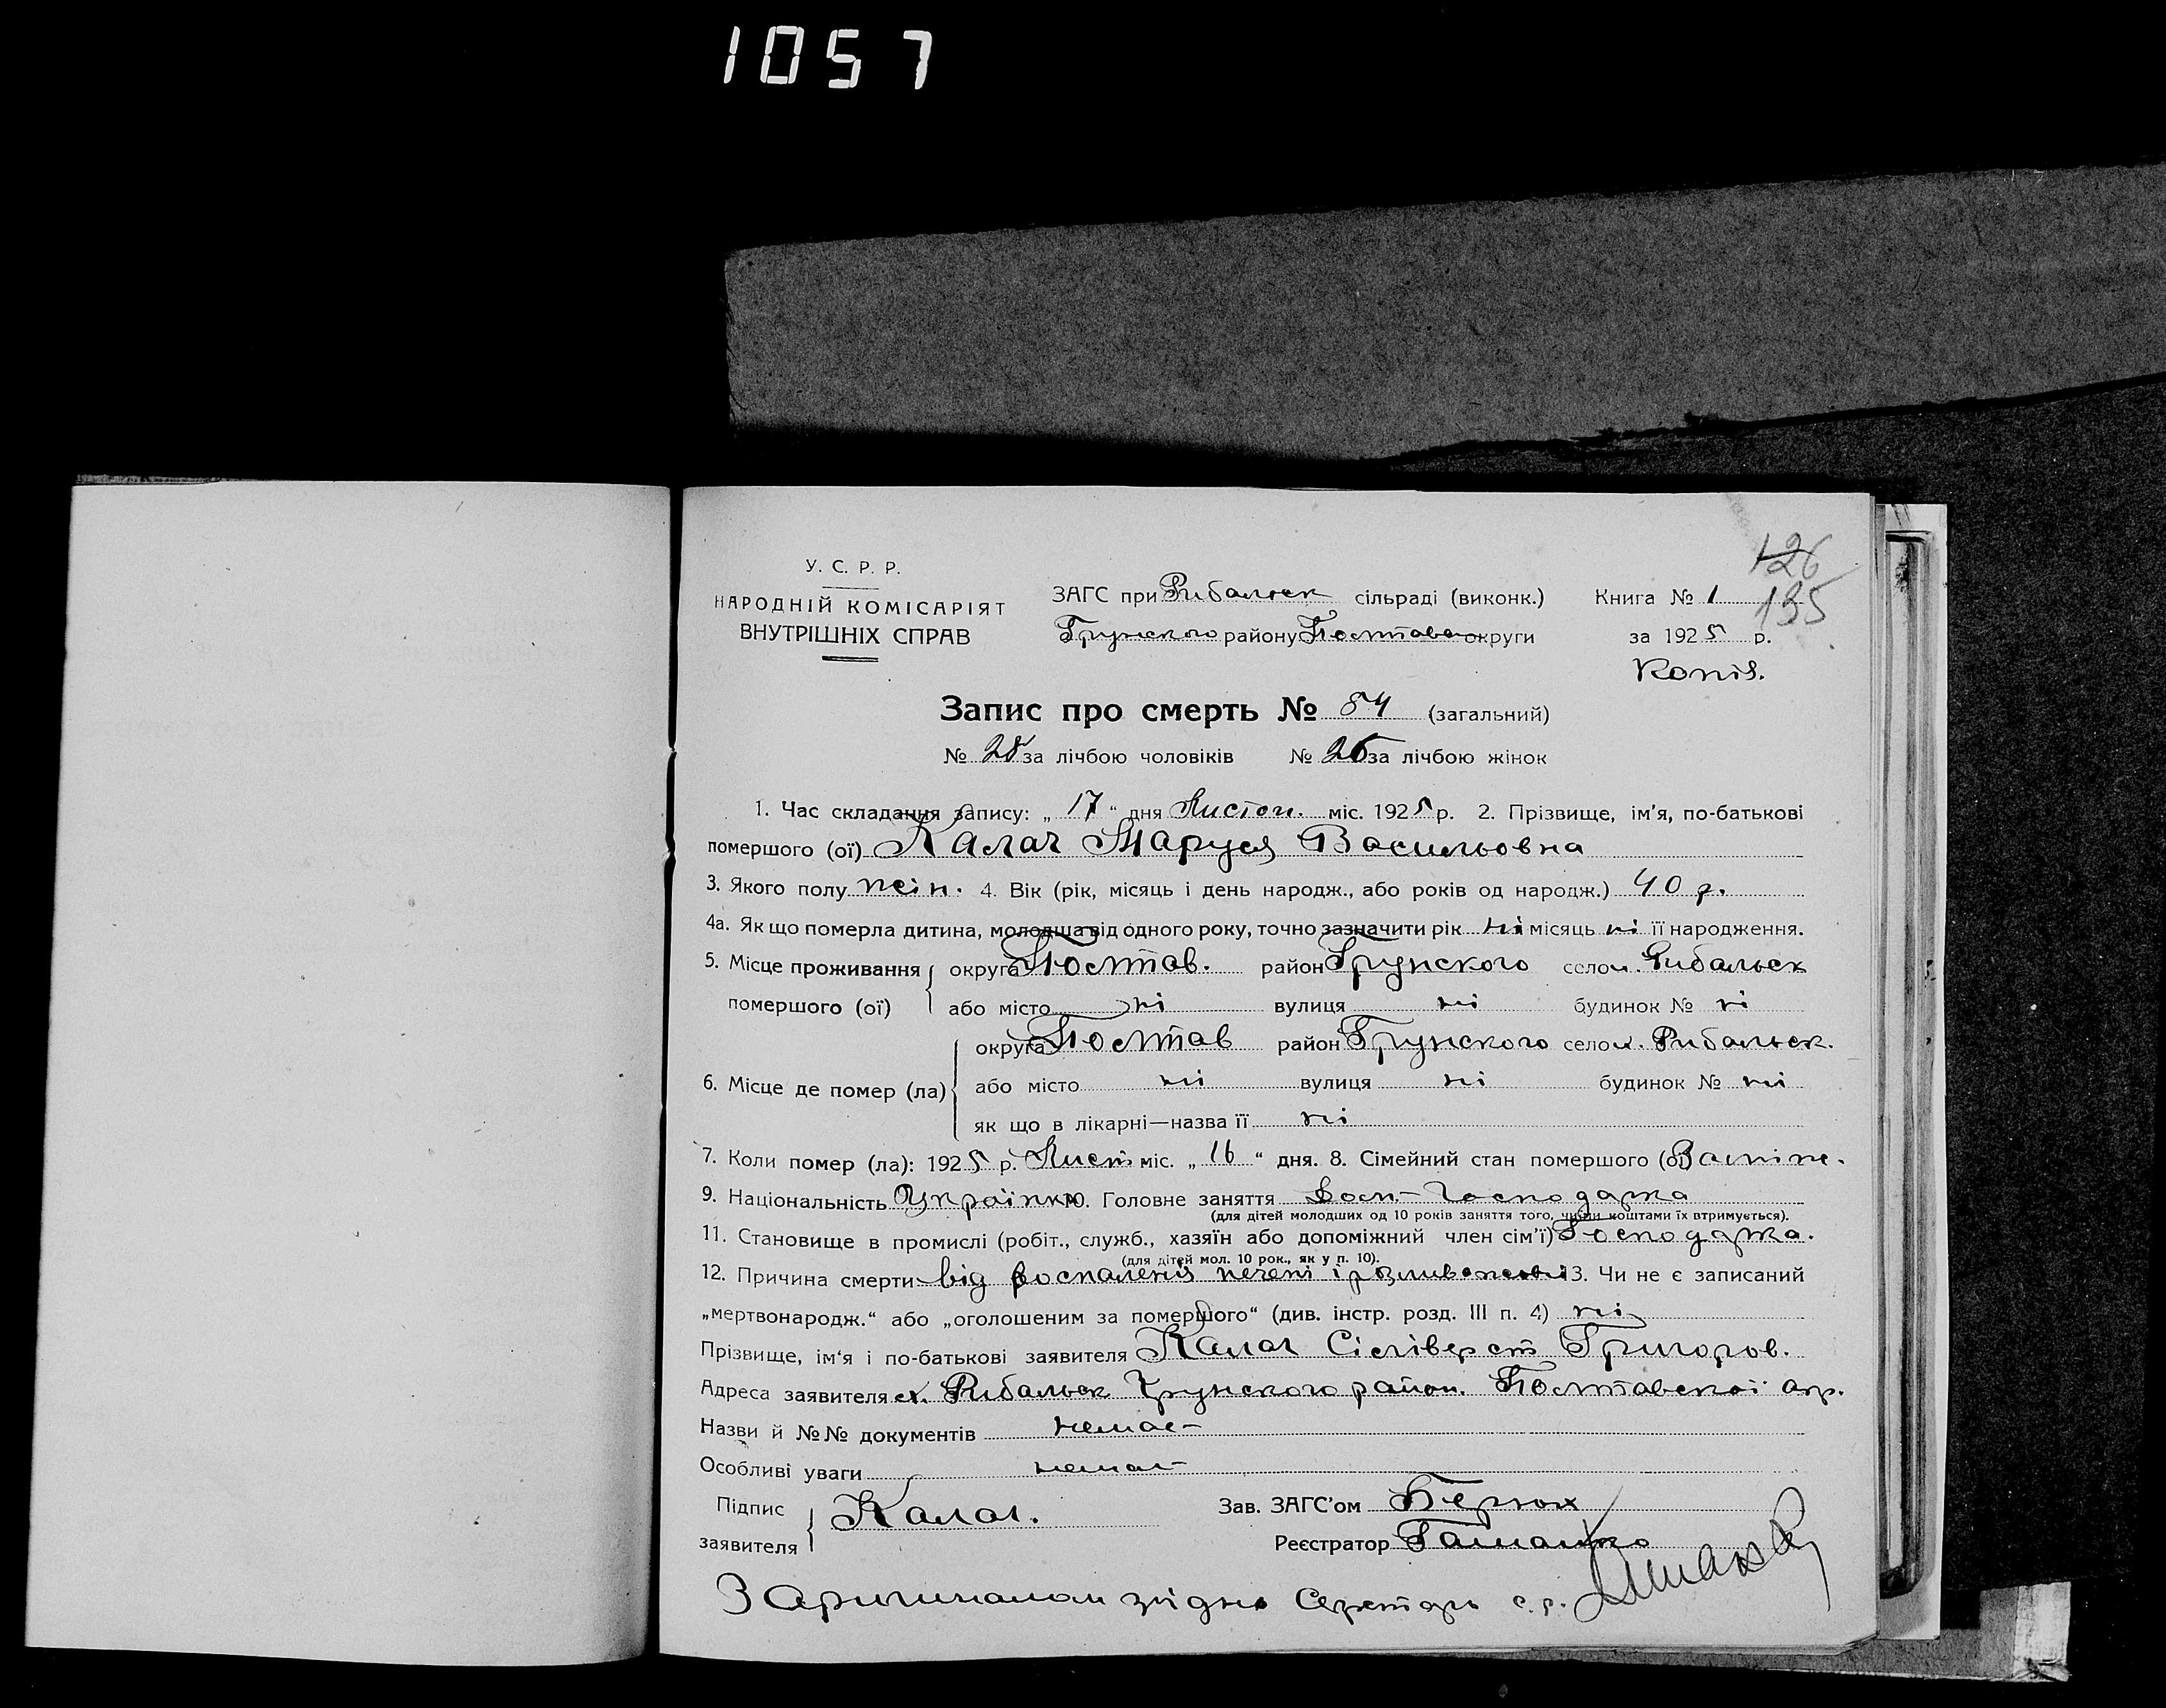 1057
126
135
У. С. Р. Р.
НАРОДНІЙ КОМІСАРІЯТ
ВНУТРІШНІХ СПРАВ
ЗАГС при Рибальск сільраді (виконк.)
Грунского району Полтавс округи
Книга № 1
за 1925 р.
Копія.
Запис про смерть № 54 (загальний)
№ 28 за лічбою чоловіків № 26 за лічбою жінок
1. Час складання запису: „ 17 “ дня Листоп. міс. 1925 р. 2. Прізвище, ім'я, по-батькові
помершого (ої) Калач Маруся Васильовна
3. Якого полу жін. 4. Вік (рік, місяць і день народж., або років од народж.) 40 р.
4а. Як що померла дитина, молодша від одного року, точно зазначити рік ні місяць ні її народження.
5. Місце проживання округа Полтав. район Грунского село х. Рибальск
помершого (ої) або місто ні вулиця ні будинок № ні
округа Полтав район Грунского село х. Рибальск.
6. Місце де помер (ла) або місто ні вулиця ні будинок № ні
як що в лікарні—назва її ні
7. Коли помер (ла): 1925 р. Лист міс. „ 16 “ дня. 8. Сімейний стан помершого (ої) Замінж.
9. Національність Українка 10. Головне заняття Дом. Господарка
(для дітей молодших од 10 років заняття того, чиїми коштами їх втримується).
11. Становище в промислі (робіт., служб., хазяїн або допоміжний член сім'ї) Господарка.
(для дітей мол. 10 рок., як у п. 10).
12. Причина смерти від воспаленія печені і 13. Чи не є записаний
„мертвонародж.“ або „оголошеним за помершого“ (див. інстр. розд. III п. 4) ні
Прізвище, ім'я і по-батькові заявителя Калач Сіліверст Григоров.
Адреса заявителя х. Рибальск Грунского район. Полтавської окр.
Назви й №№ документів немає
Особливі уваги немає
Підпис заявителя Калач.
Зав. ЗАГС'ом Берюх
Реєстратор
З Оригиналом згідно Секретарь с.р.